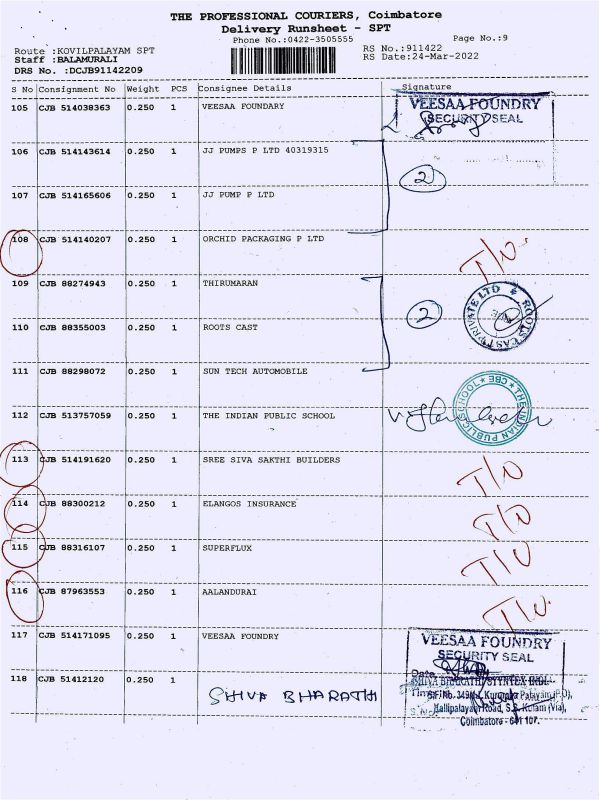 THE PROFESSIONAL COURIERS, Coimbatore
Delivery Runsheet - SPT
Phone No.:0422-3505555 Page No.:9
Route :KOVILPALAYAM SPT RS No.:911422
Staff :BALAMURALI RS Date:24-Mar-2022
DRS No. :DCJB91142209
S No Consignment No Weight PCS Consignee Details Signature
105 CJB 514038363 0.250 1 VEESAA FOUNDARY
VEESAA FOUNDRY
SECURITY SEAL
106 CJB 514143614 0.250 1 JJ PUMPS P LTD 40319315
2
107 CJB 514165606 0.250 1 JJ PUMP P LTD
108 CJB 514140207 0.250 1 ORCHID PACKAGING P LTD T/N.
109 CJB 88274943 0.250 1 THIRUMARAN
2
ROOTS CAST PRIVATE LTD
110 CJB 88355003 0.250 1 ROOTS CAST
111 CJB 88298072 0.250 1 SUN TECH AUTOMOBILE
THE INDIAN PUBLIC SCHOOL CBE
112 CJB 513757059 0.250 1 THE INDIAN PUBLIC SCHOOL
113 CJB 514191620 0.250 1 SREE SIVA SAKTHI BUILDERS T/N
114 CJB 88300212 0.250 1 ELANGOS INSURANCE T/N
115 CJB 88316107 0.250 1 SUPERFLUX T/N
116 CJB 87963553 0.250 1 AALANDURAI T/N.
117 CJB 514171095 0.250 1 VEESAA FOUNDRY
VEESAA FOUNDRY
SECURITY SEAL
Date
118 CJB 51412120 0.250 1
SHIVA BHARATHI
S.F.No. 349/ Palayam (P.O),
Kallipalayam Road, S.S. Kulam (Via),
Coimbatore - 641 107.